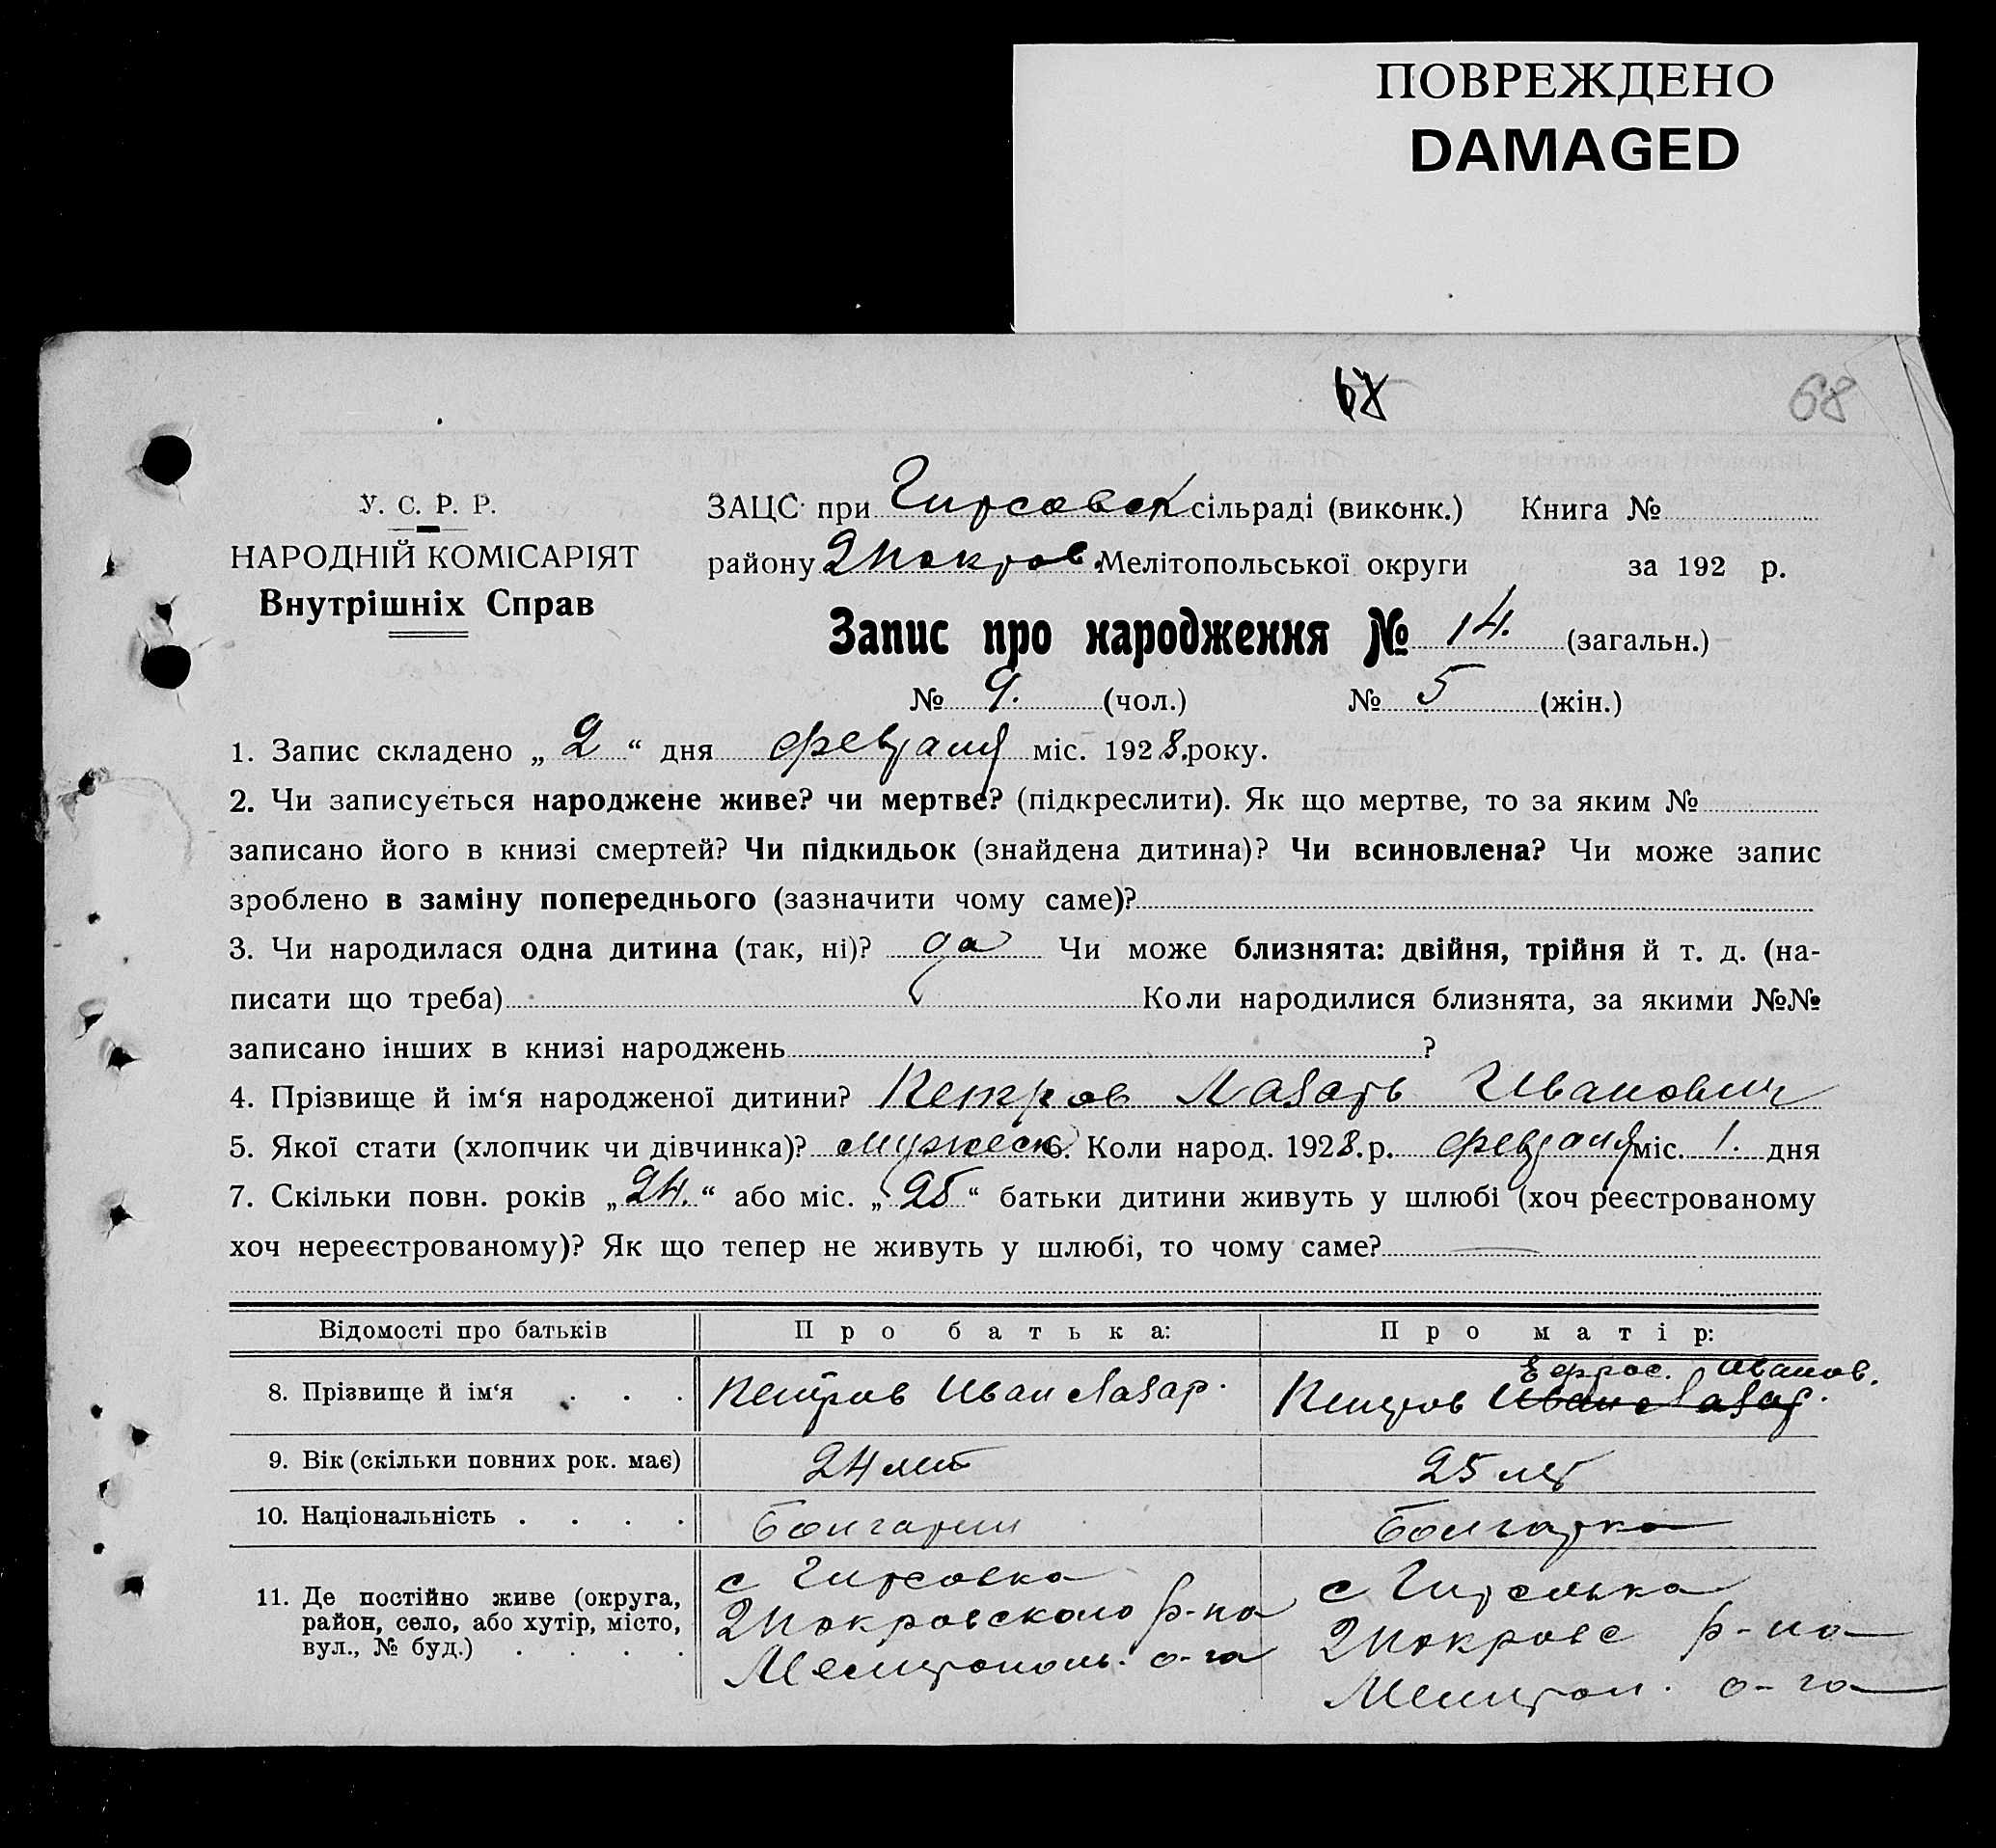 ПОВРЕЖДЕНО
DAMAGED
68
У. С. Р. Р.
НАРОДНІЙ КОМІСАРІЯТ
Внутрішніх Справ
ЗАЦС при Гирсовск сільраді (виконк.) Книга №
району 2 Покров. Мелітопольської округи за 192 р.
Запис про народження № 14. (загальн.)
№ 9. (чол.) № 5 (жін.)
1. Запис складено „ 2 “ дня февраля міс. 1928. року.
2. Чи записується народжене живе? чи мертве? (підкреслити). Як що мертве, то за яким №
записано його в книзі смертей? Чи підкидьок (знайдена дитина)? Чи всиновлена? Чи може запис
зроблено в заміну попереднього (зазначити чому саме)?
3. Чи народилася одна дитина (так, ні)? да Чи може близнята: двійня, трійня й т. д. (на-
писати що треба) Коли народилися близнята, за якими №№
записано інших в книзі народжень ?
4. Прізвище й ім‘я народженої дитини? Петров Лазарь Иванович
5. Якої стати (хлопчик чи дівчинка)? мужеск 6. Коли народ. 1928. р. февраля міс. 1. дня
7. Скільки повн. років „ 24. “ або міс. „ 25 “ батьки дитини живуть у шлюбі (хоч реєстрованому
хоч нереєстрованому)? Як що тепер не живуть у шлюбі, то чому саме? —
Відомості про батьків П р о б а т ь к а: П р о м а т і р:
Ефрос. Иванов.
8. Прізвище й ім‘я . . . Петров Иван Лазар. Петров Иван Лазар.
9. Вік (скільки повних рок. має) 24 лет 25 лет
10. Національність . . . . Болгарин Болгарка
11. Де постійно живе (округа, район, село, або хутір, місто, вул., № буд.) . . . .
с Гирсовка
2 Покровского р-на
Мелитополь. о-га
с Гирсовка
2 Покровс р-на
Мелитоп. о-га